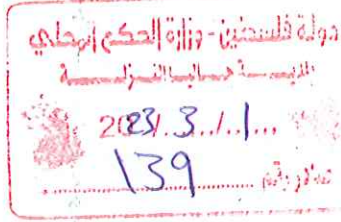 دولة فلسطين - وزارة الحكم المحلي
2023/3/1
139
صادر رقم